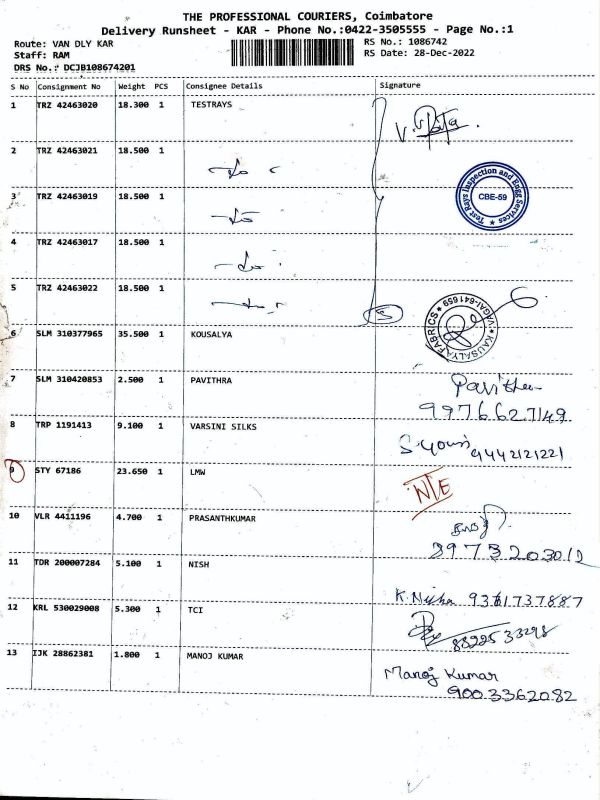 THE PROFESSIONAL COURIERS, Coimbatore
Delivery Runsheet - KAR - Phone No.:0422-3505555 - Page No.:1
Route: VAN DLY KAR
RS No.: 1086742
Staff: RAM
RS Date: 28-Dec-2022
DRS No.: DCJB108674201
S No Consignment No Weight PCS Consignee Details Signature
1 TRZ 42463020 18.300 1 TESTRAYS
2 TRZ 42463021 18.500 1
3 TRZ 42463019 18.500 1
Test Rays Inspection and Engg Services
CBE-59
4 TRZ 42463017 18.500 1
5 TRZ 42463022 18.500 1
5
KAUSALYA FABRICS
VAGAI-641659
6 SLM 310377965 35.500 1 KOUSALYA
7 SLM 310420853 2.500 1 PAVITHRA
9976627149
8 TRP 1191413 9.100 1 VARSINI SILKS
9442121221
9 STY 67186 23.650 1 LMW
10 VLR 4411196 4.700 1 PRASANTHKUMAR
11 TDR 200007284 5.100 1 NISH
K. Nisha 9361737887
12 KRL 530029008 5.300 1 TCI
13 IJK 28862381 1.800 1 MANOJ KUMAR
Manoj Kumar
9003362082